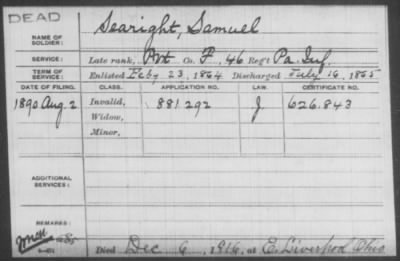 DEAD
NAME OF SOLDIER: Searight, Samuel
SERVICE: Late rank, Pvt Co. F, 46 Reg't Pa Inf.
TERM OF SERVICE: Enlisted Feby 23, 1864 Discharged July 16, 1865
DATE OF FILING. CLASS. APPLICATION NO. LAW. CERTIFICATE NO.
1890 Aug. 2 Invalid, 881.292 J. 626.843
Widow,
Minor,
ADDITIONAL SERVICES:
REMARKS:
Died Dec 6, 1916, at E. Liverpool Ohio